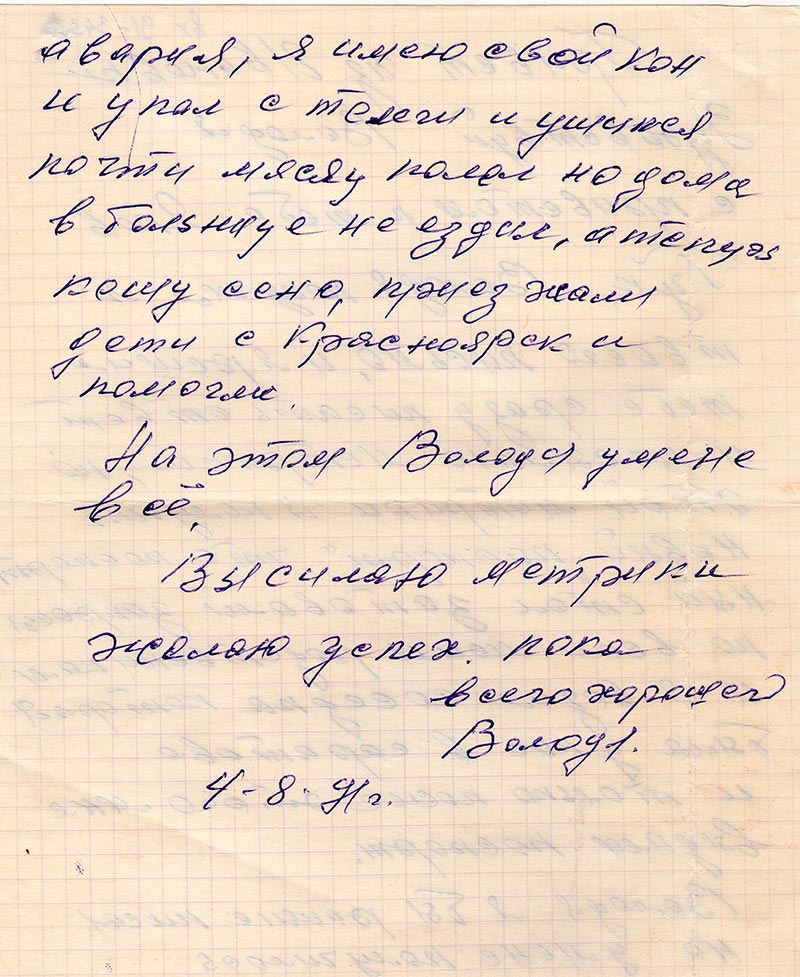 авария, я имею свой кон
и упал с телеги и ушипся
почти мясяц полел но дома
в больнице не ездил, а тепурь
кошу сено, приезжали
дети с Красноярск и
помогли.
На этом Володя у мене
всё,
Высилаю метрики
желаю успех. пока
всего хорошего
Володя.
4-8-91г.